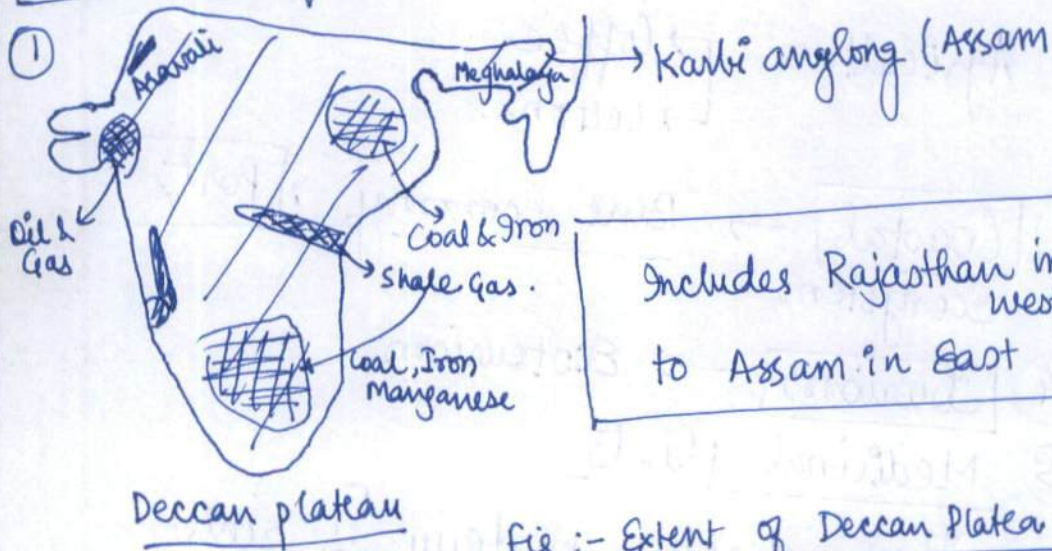 ①
Aravali
Meghalaya
Karbi anglong (Assam
Oil &
Gas
Coal & Iron
Shale Gas.
Coal, Iron
Manganese
Includes Rajasthan in
west
to Assam in East
Deccan plateau
Fig :- Extent of Deccan Platea